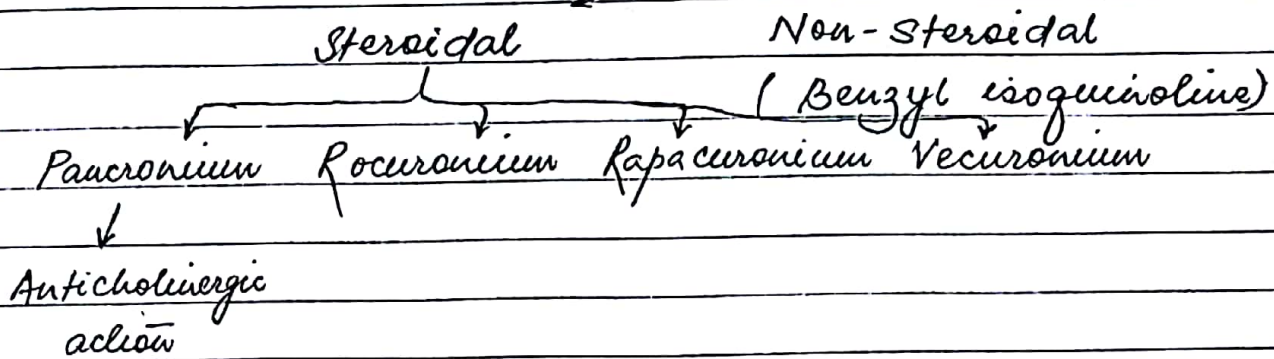 Steroidal Non-Steroidal
(Benzyl isoquinoline)
Pancronium Rocuronium Rapacuronium Vecuronium
Anticholinergic
action